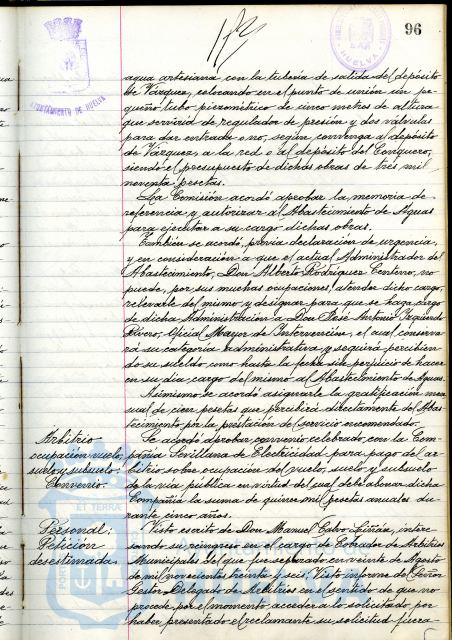 96
AYUNTAMIENTO DE HUELVA
HUELVA
agua artesiana con la tubería de salida del depósito
de Vázquez, colocando en el punto de unión un pe-
queño tubo piezométrico de cinco metros de altura
que serviría de regulador de presión y dos válvulas
para dar entrada o no, según convenga al depósito
de Vázquez, a la red o al depósito del Conquero,
siendo el presupuesto de dichas obras de tres mil
noventa pesetas.
La Comisión acordó aprobar la memoria de
referencia y autorizar al Abastecimiento de Aguas
para ejecutar a su cargo dichas obras.
También se acordó, previa declaración de urgencia,
y en consideración a que el actual Administrador del
Abastecimiento, Don Alberto Rodríguez Centeno, no
puede, por sus muchas ocupaciones, atender dicho cargo,
relevarle del mismo y designar para que se haga cargo
de dicha Administración a Don José Antonio Izquierdo
Rivero, Oficial Mayor de Intervención, el cual conserva-
rá su categoría administrativa y seguirá percibien-
do su sueldo como hasta la fecha sin perjuicio de hacer
en su día cargo del mismo al Abastecimiento de Aguas.
Asimismo se acordó asignarle la gratificación men-
sual de cien pesetas que percibirá directamente del Abas-
tecimiento por la prestación del servicio encomendado.
Arbitrio
ocupación vuelo,
suelo y subsuelo.
Convenio.
Se acordó aprobar convenio celebrado con la Com-
pañía Sevillana de Electricidad para pago del ar-
bitrio sobre ocupación del vuelo, suelo y subsuelo
de la vía pública en virtud del cual debe abonar dicha
Compañía la suma de quince mil pesetas anuales du-
rante cinco años.
Personal:
Petición
desestimada.
Visto escrito de Don Manuel Calvo Liñán, intere-
sando su reingreso en el cargo de Cobrador de Arbitrios
Municipales del que fue separado en veinte de Agosto
de mil novecientos treinta y seis; Visto informe del Señor
Gestor Delegado de Arbitrios en el sentido de que no
procede, por el momento, acceder a lo solicitado por
haber presentado el reclamante su solicitud fuera